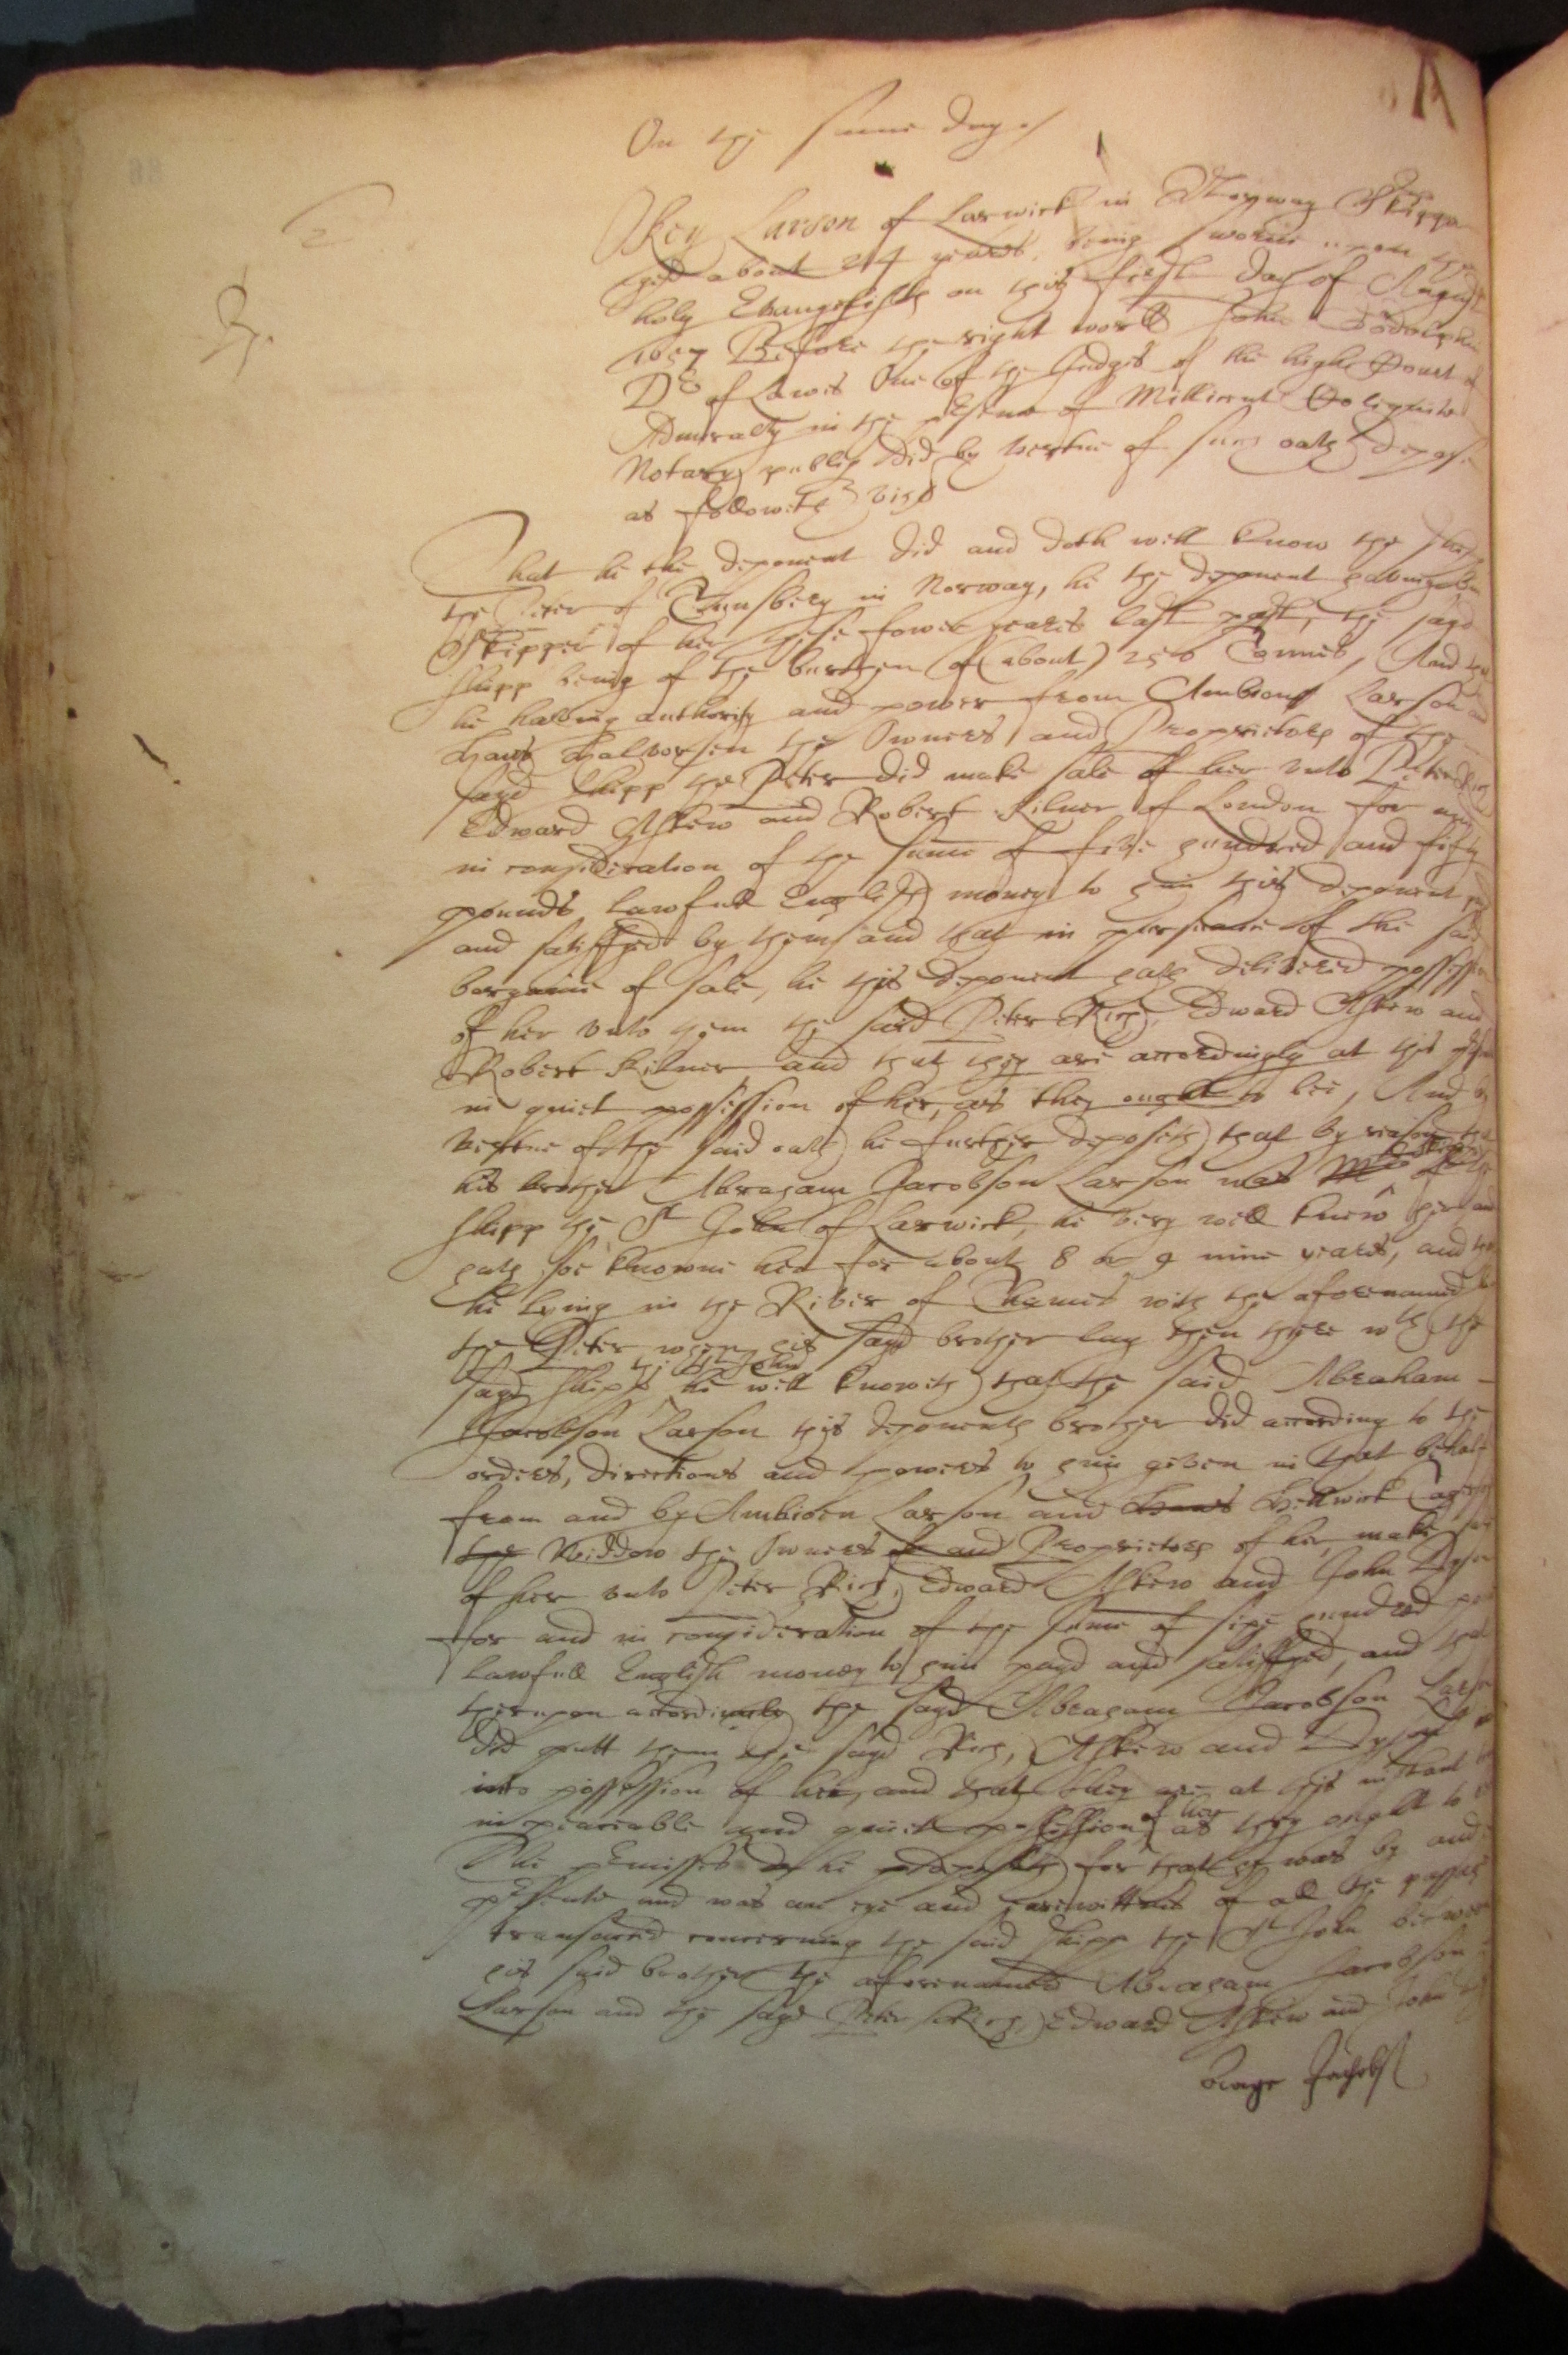 On the same day./
2
B.
Okey Larson of Larwick in Norway Skipper
aged about 24 yeares, being sworne upon the
holy Evangelists on this first day of August
1657 Before the right worll John Godolphin
Dr of Lawes One of the Judges of the high Court of
Admiralty in the presence of
Notary publiq did by vertue of his oath depose
as followeth vizt
That he the deponent did and doth well know the shipp
the Peter of Tunsberg in Norway, he the deponent having been
Skipper of her these fower yeares last past, the sayd
shipp being of the burthen of (about) 250 Tonnes, And that
he having authority and power from Ambiorn Larson and
Hans Halvorsen the Owners and Proprietors of the
sayd shipp the Peter did make sale of her unto Peter Rich
Edward Askew and Robert Kilner of London for and
in consideration of the summe of five hundred and fifty
pounds lawfull English money to him this deponent payd
and satisffyed by them and that in pursuance of the said
bargaine of sale, he this deponent hath delivered possession
of her unto them the said Peter Rich, Edward Askew and
Robert Kilner and that they are accordingly at this
in quiet possession of her, as they ought to bee, And by
vertue of the said oath he further deposeth that by reason that
his brother Abraham Jacobson Larson was Mr of the
shipp the St John of Larwick, he very well knew her and
hath soe knowne her for about 8 or 9 nine yeares, and that
he lying in the River of Thames with the aforenamed shipp
the Peter when his sayd brother lay then there wth the
sayd shipp the St John he well knoweth that the said Abraham
Jacobson Larson this deponents brother did according to the
orders, directions and powers to him given in that behalf
from and by Ambioen Larson and Hans Hellwick
the Widdow the Owners of and Proprietors of her, make sale
of her unto Peter Rich, Edward Askew and John Dyson
for and in consideration of the summe of sixe hundred pounds
lawfull English money to him payd and satisffyed, and that
thereupon accordingly the sayd Abraham Jacobson Larson
did putt them the sayd Rich, Askew and Dyson
into possession of her, and that they are at this instant
in peaceable and quiet possession of her as they ought to be
The premisses he deposeth for that he was by and
present and was an eye and eare wittnes of all the passages
transacted concerning the said shipp the St John betweene
his said brother the aforenamed Abraham Jacobson
Larson and the sayd Peter Rich, Edward Askew and John